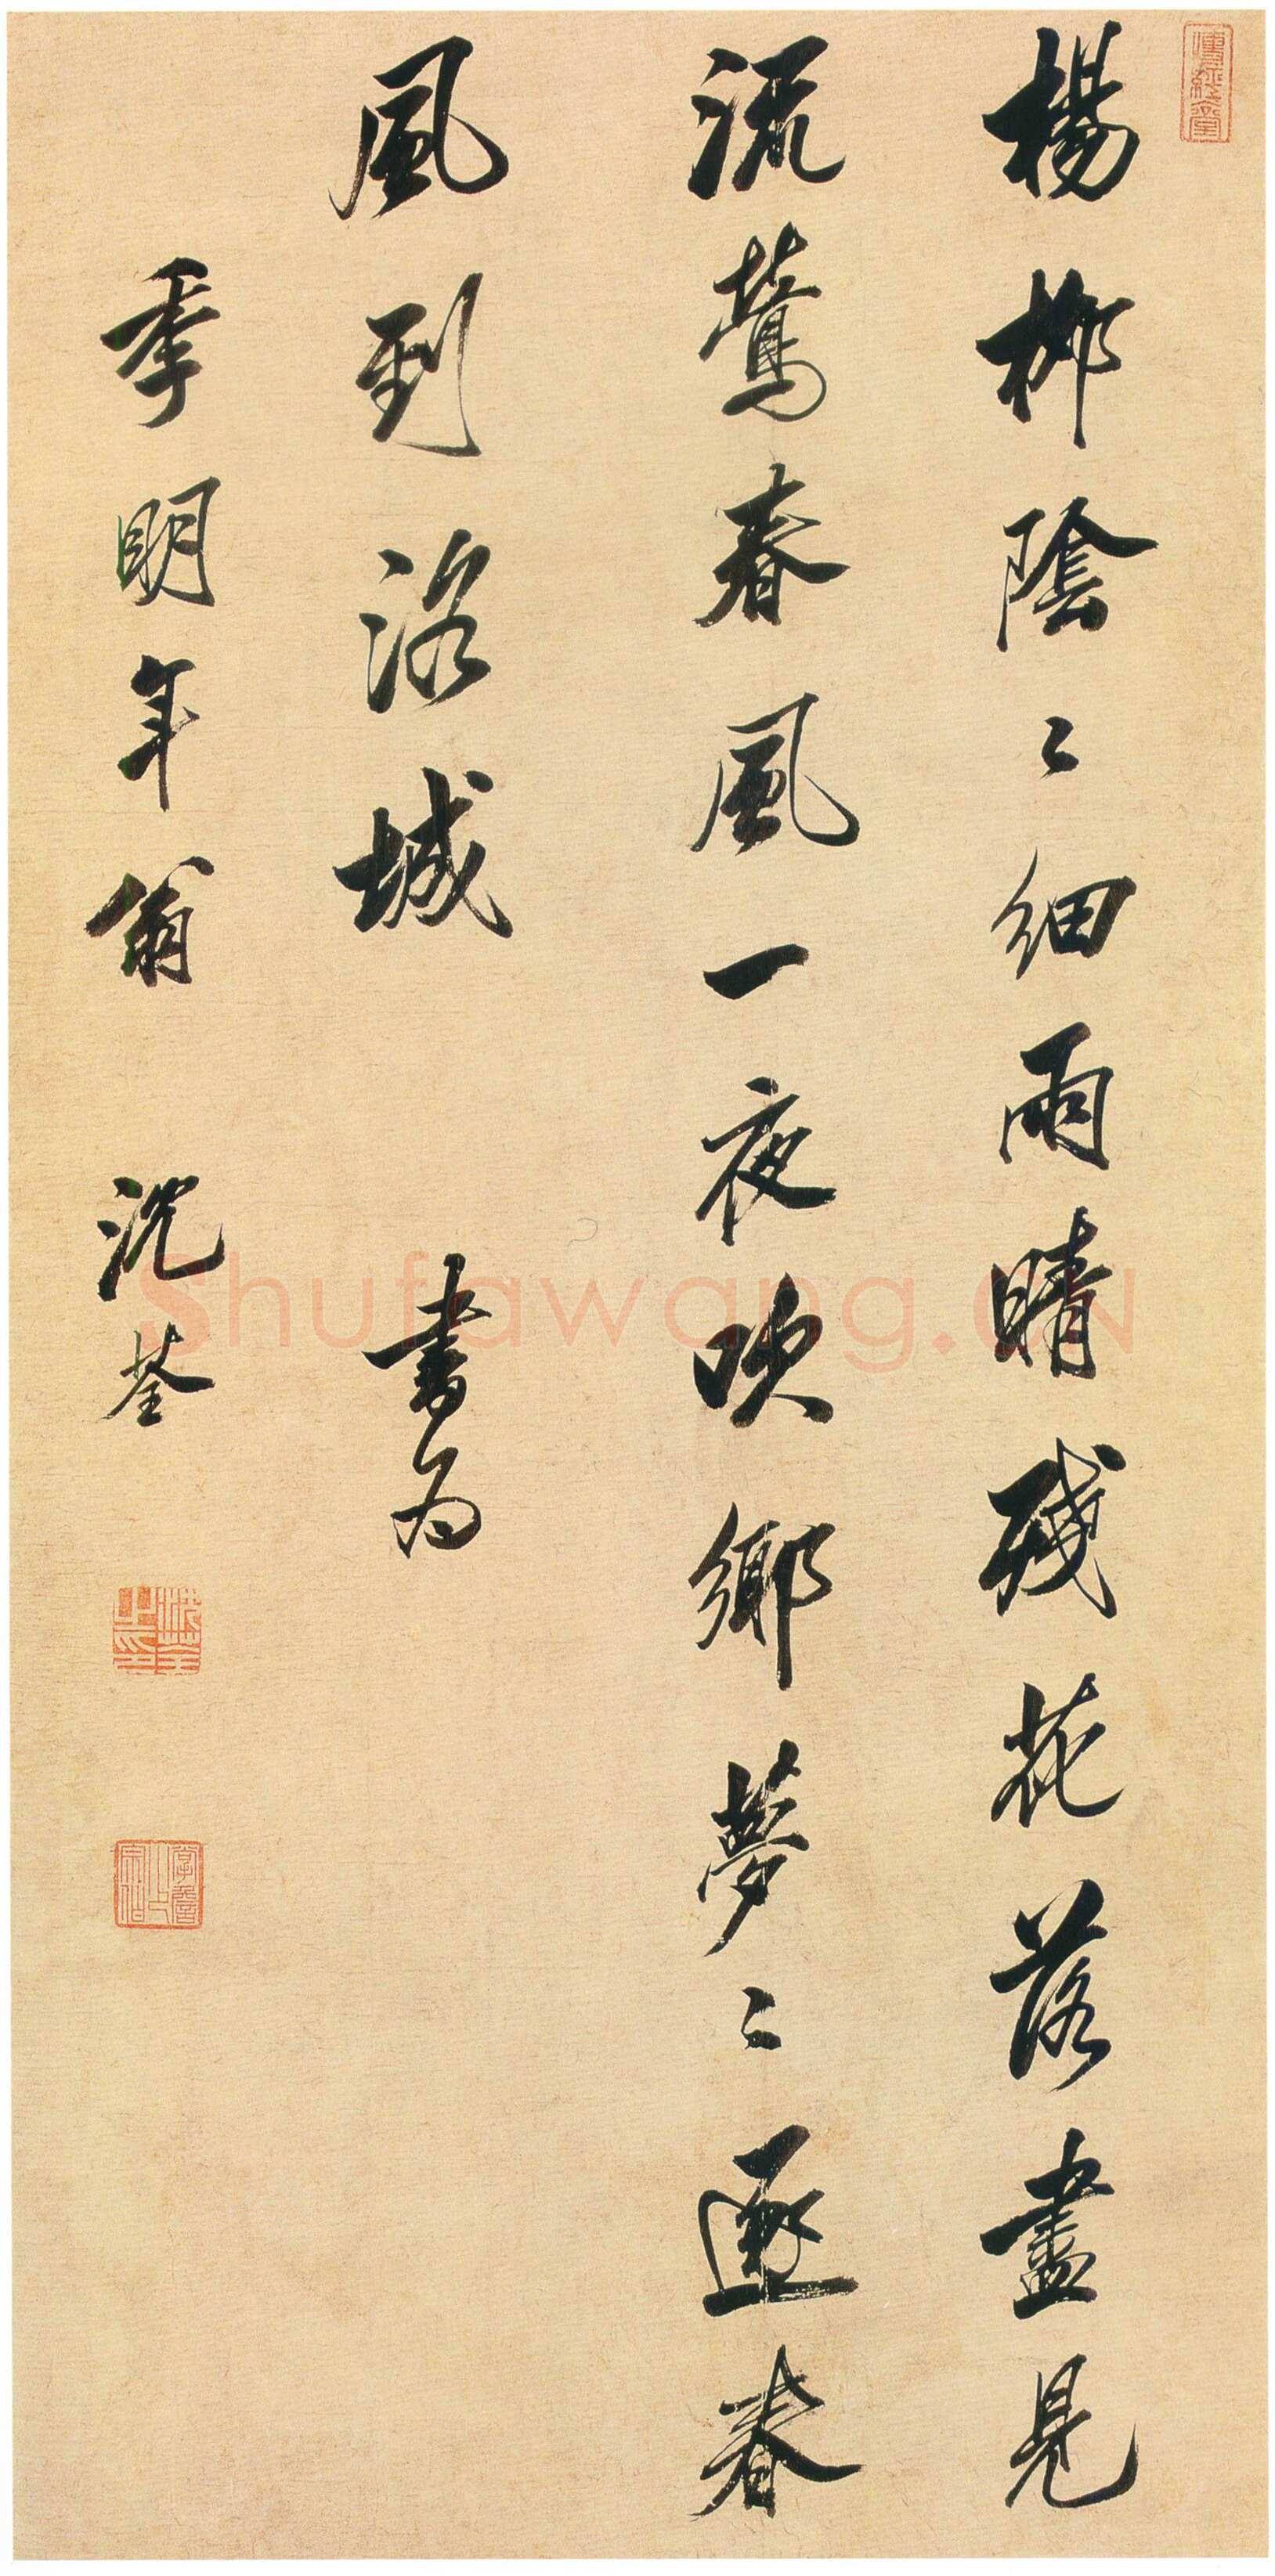 楊柳陰〻細雨晴殘花落盡見
流鶯春風一夜吹鄉夢〻逐春
風到洛城 書為
季明年翁 沈荃
傳經堂
沈荃之印
Shufawang.CN